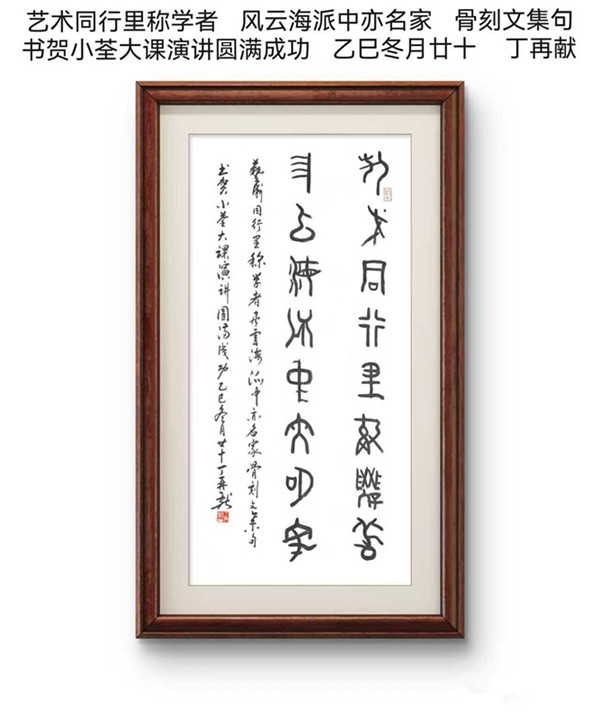 艺术同行里称学者 风云海派中亦名家 骨刻文集句
书贺小荃大课演讲圆满成功 乙巳冬月廿十 丁再献
艺术同行里称学者
风云海派中亦名家
艺术同行里称学者风云海派中亦名家骨刻文集句
书贺小荃大课演讲圆满成功乙巳冬月廿十丁再献